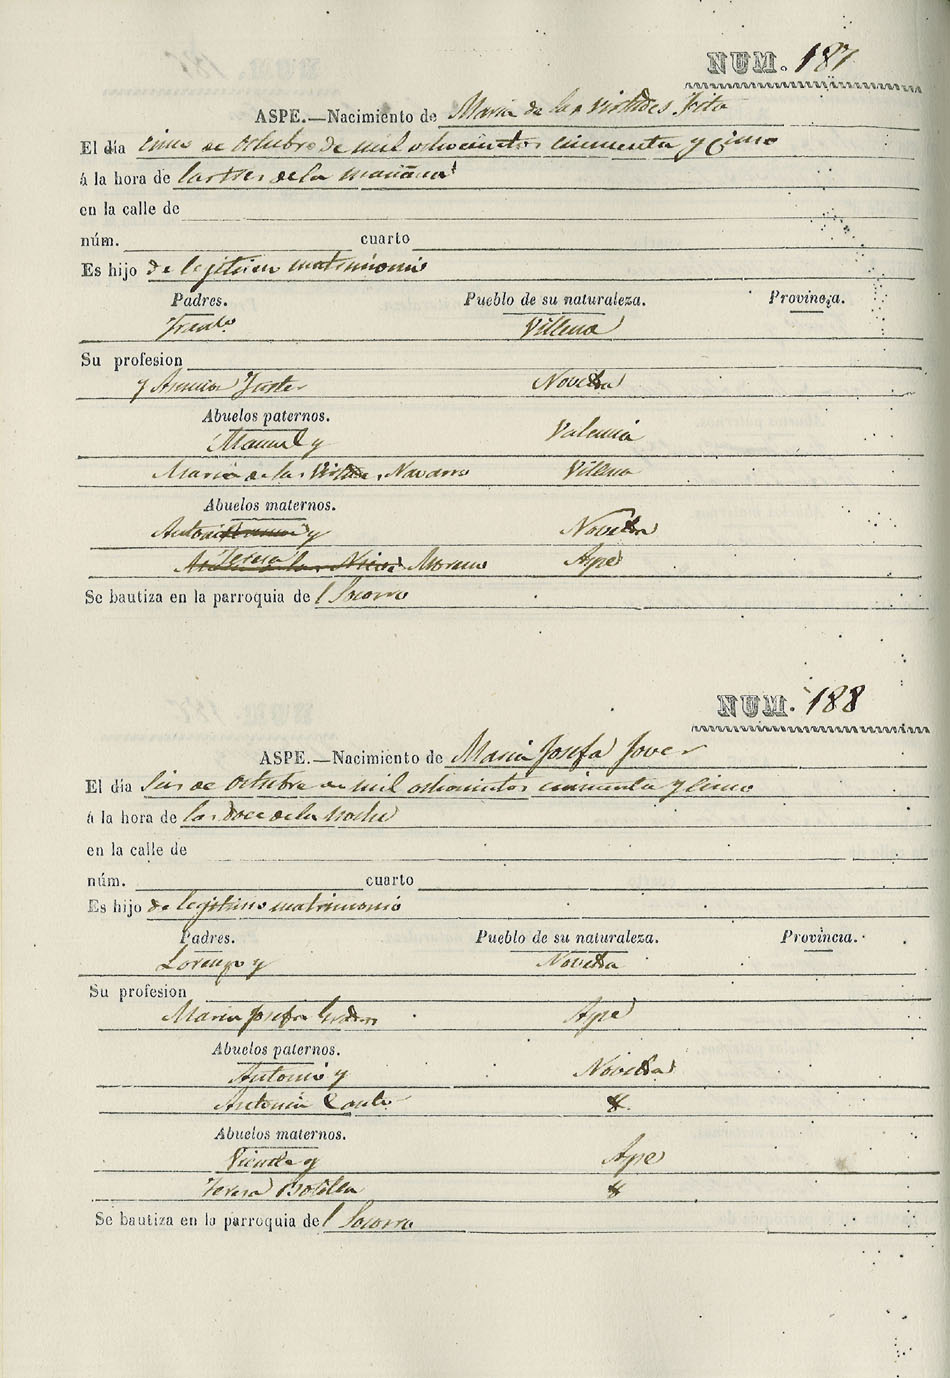 NUM. 187
ASPE.—Nacimiento de Maria de las Virtudes Fita
El día cinco de Octubre de mil ochocientos cincuenta y cinco
á la hora de las tres de la mañana
en la calle de
núm. cuarto
Es hijo de legitimo matrimonio
Padres. Pueblo de su naturaleza. Provincia.
Villena
Su profesion
y Novelda
Abuelos paternos.
Manuel y Valencia
Maria de las Virtudes Navarro Villena
Abuelos maternos.
Antonio y Novelda
Teresa Moreno Aspe
Se bautiza en la parroquia del Socorro
NUM. 188
ASPE.—Nacimiento de Maria Josefa Jover
El día seis de Octubre de mil ochocientos cincuenta y cinco
á la hora de las doce de la noche
en la calle de
núm. cuarto
Es hijo de legitimo matrimonio
Padres. Pueblo de su naturaleza. Provincia.
Lorenzo y Novelda
Su profesion
Maria Josefa Aspe
Abuelos paternos.
Antonio y Novelda
Antonia
Abuelos maternos.
Vicente y Aspe
Teresa Botella
Se bautiza en la parroquia del Socorro